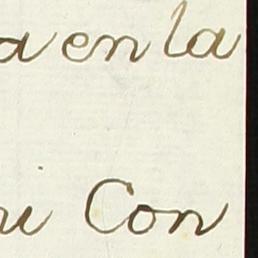 a en la
Con